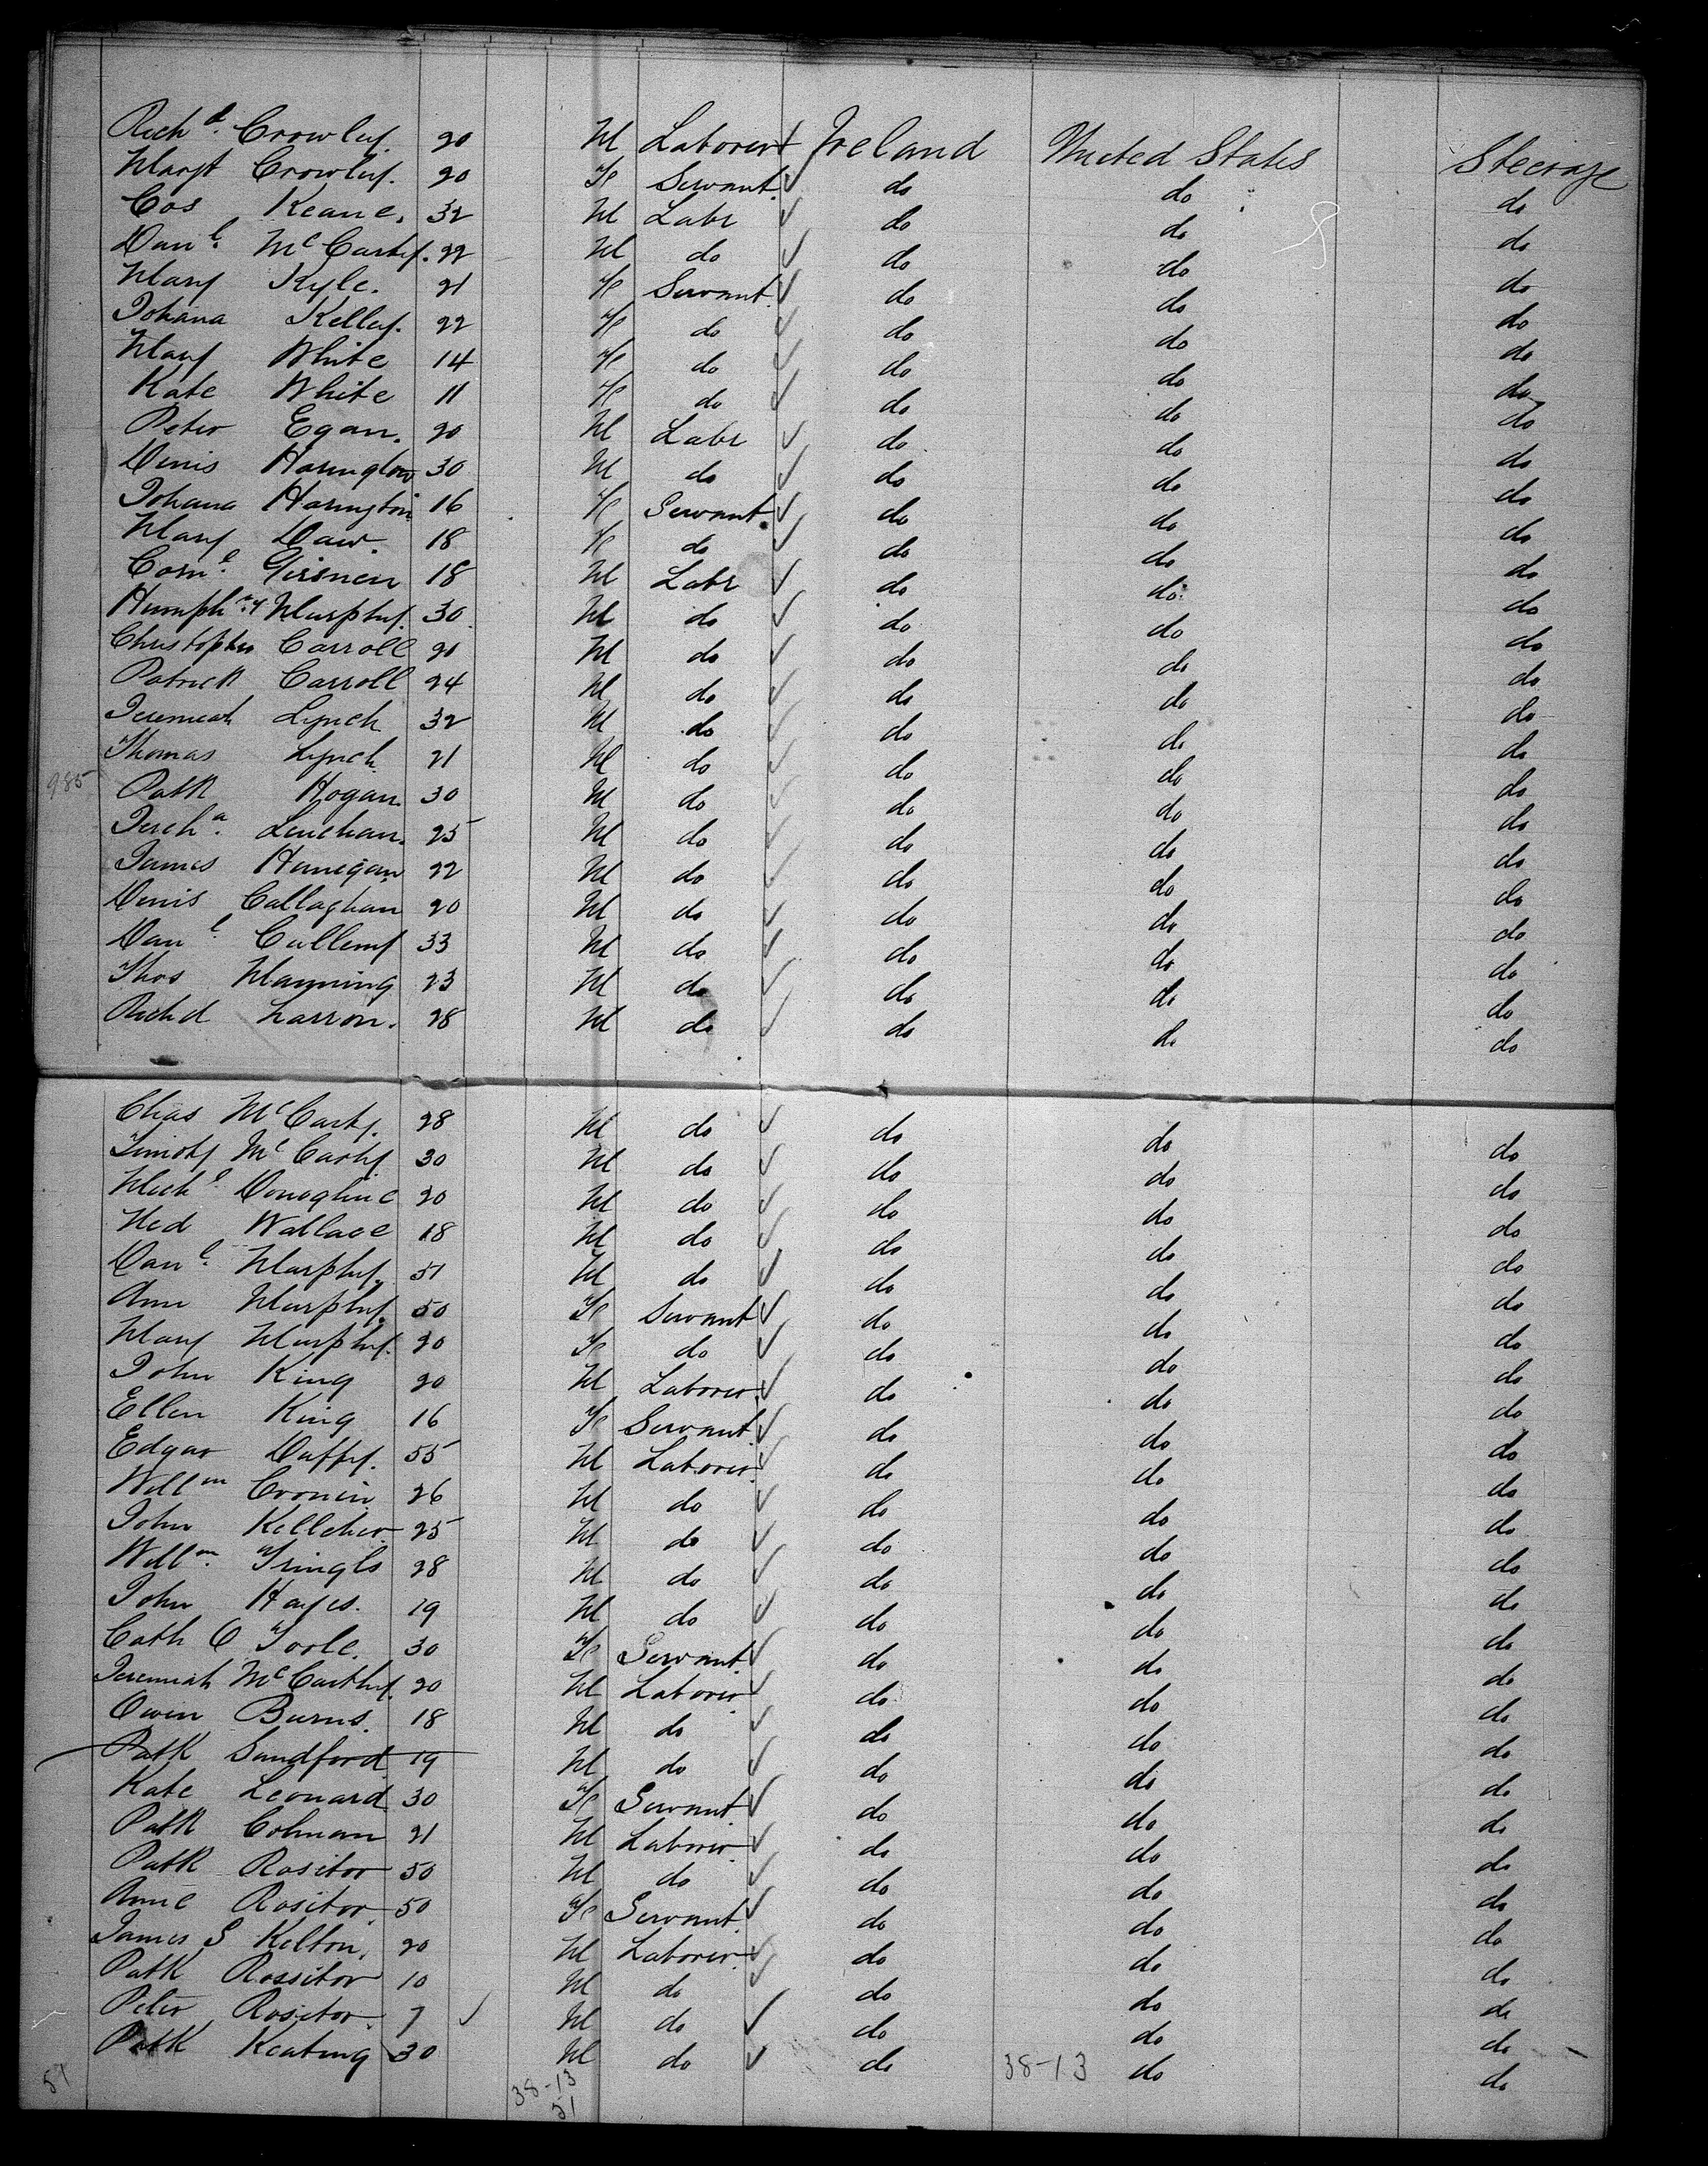 Richd. Crowley. 20 M Laborer Ireland United States Steerage
Margt Crowley. 20 F Servant. do do do
Cos Keane. 32 M Labr do do do
Danl. McCarty. 22 M do do do do
Mary Kyle. 21 F Servant. do do do
Johana Kelley. 22 F do do do do
Mary White 14 F do do do do
Kate White 11 F do do do do
Peter Egan. 20 M Labr do do do
Denis Harington 30 M do do do do
Johana Harington 16 F Servant. do do do
Mary Daw. 18 F do do do do
Cornl. 18 M Labr do do do
Humphry Murphy. 30 M do do do do
Christopher Carroll 20 M do do do do
Patrick Carroll 24 M do do do do
Jeremeah Lynch 32 M do do do do
Thomas Lynch 21 M do do do do
985 Patk Hogan. 30 M do do do do
Jerha. Lenehan. 25 M do do do do
James Hanegan 22 M do do do do
Denis Callaghan 20 M do do do do
Danl. 33 M do do do do
Thos Manning 23 M do do do do
Richd Larron. 28 M do do do do
Chas McCarty. 28 M do do do do
Timoty McCarty. 30 M do do do do
Michl. Donaghue 20 M do do do do
Ned Wallace 18 M do do do do
Danl. Murphy. 51 M do do do do
Ann Murphy. 50 F Servant do do do
Mary Murphy. 20 F do do do do
John King 20 M Laborer. do do do
Ellen King 16 F Servant do do do
Edgar Duffy. 55 M Laborer. do do do
Willm Cronin 26 M do do do do
John Kelleher 25 M do do do do
Willm. 28 M do do do do
John Hayes. 19 M do do do do
Cath O Toole. 30 F Servant. do do do
Jeremiah McCarthy. 20 M Laborer do do do
Owen Burns. 18 M do do do do
Patk Sandford 19 M do do do do
Kate Leonard 30 F Servant do do do
Patk Colman 21 M Laborer. do do do
Patk Rositor 50 M do do do do
Anne Rositor 50 F Servant. do do do
James S Kelton. 20 M Laborer. do do do
Patk Rossitor 10 M do do do do
Peter Rositor. 7 M do do do do
Patk Keating 30 M do do 38-13 do do
51 38-13
51